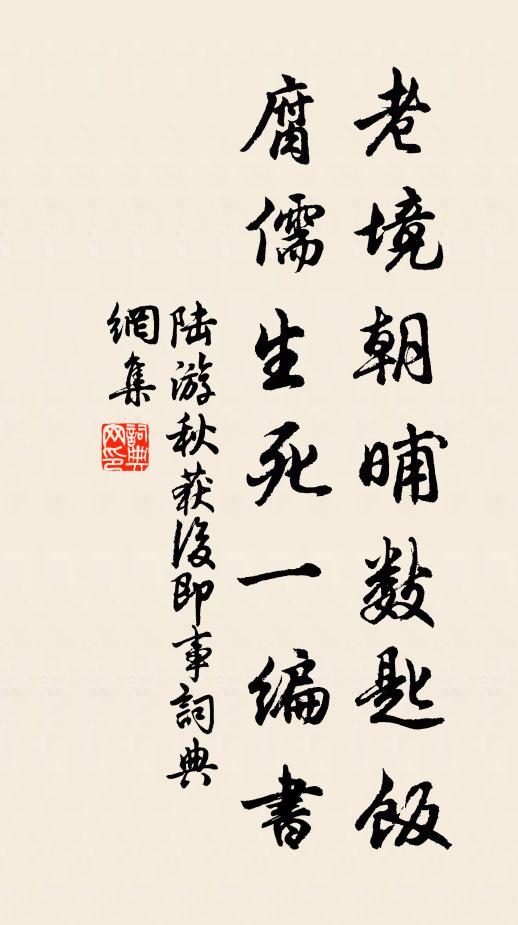 老境朝晡數匙飯
腐儒生死一編書
陸游秋获後即事詞典
網集
詞典網印